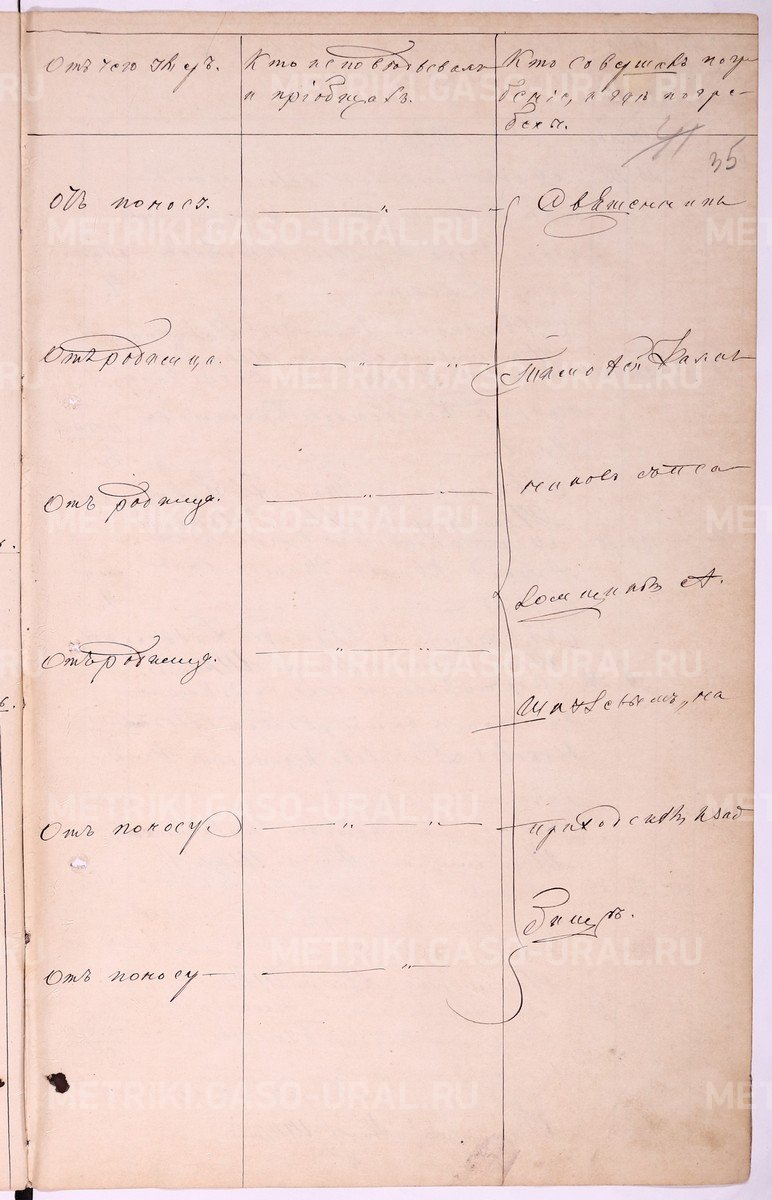 Отъ чего умеръ.
Кто исповѣдывалъ
и пріобщалъ.
Кто совершалъ погре
беніе, и гдѣ погре-
бенъ.
41 35
Отъ поноса.
Священникъ
Отъ родимца.
Тимоѳей
Отъ родимца.
никовъ съ пса
ломщикомъ А.
Отъ родимца.
на
Отъ поносу.
приходскомъ клад
бищѣ.
Отъ поносу
METRIKI.GASO-URAL.RU